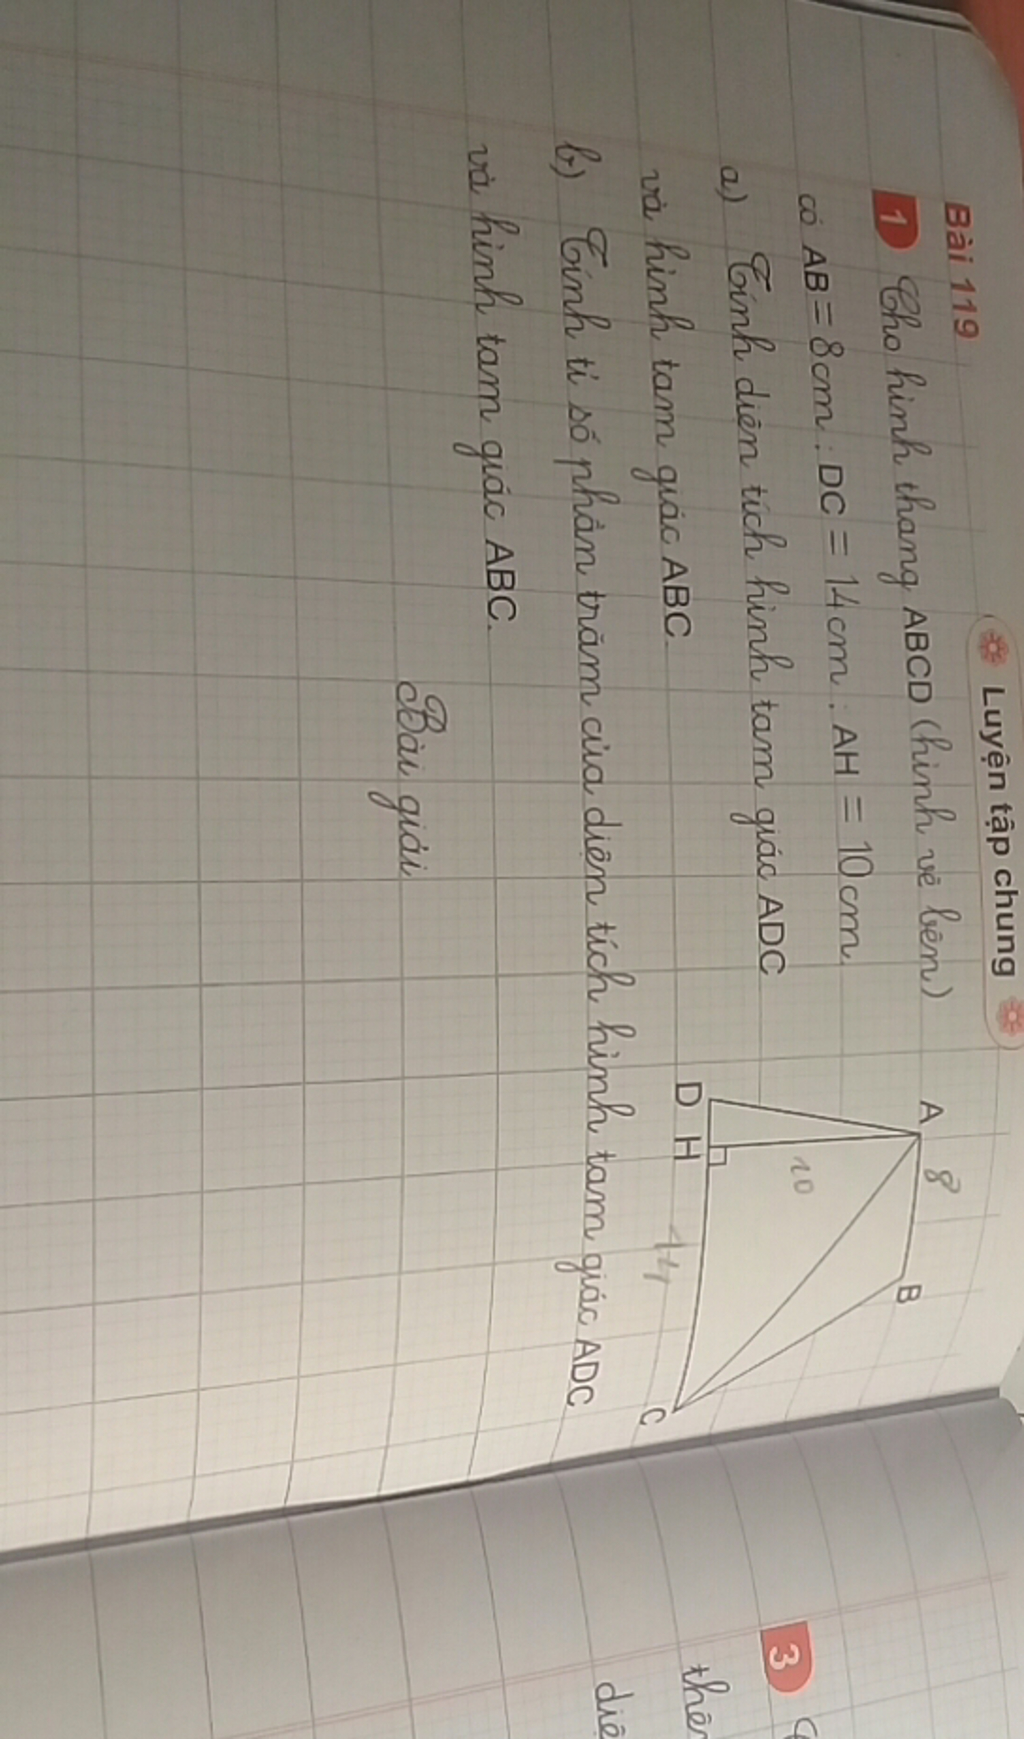 Luyện tập chung
Bài 119
1 Cho hình thang ABCD (hình vẽ bên)
có AB = 8cm ; DC = 14cm ; AH = 10cm.
a) Tính diện tích hình tam giác ADC
và hình tam giác ABC.
b) Tính tỉ số phần trăm của diện tích hình tam giác ADC
và hình tam giác ABC.
Bài giải
A 8 B
10
D H 14 C
3
diệ